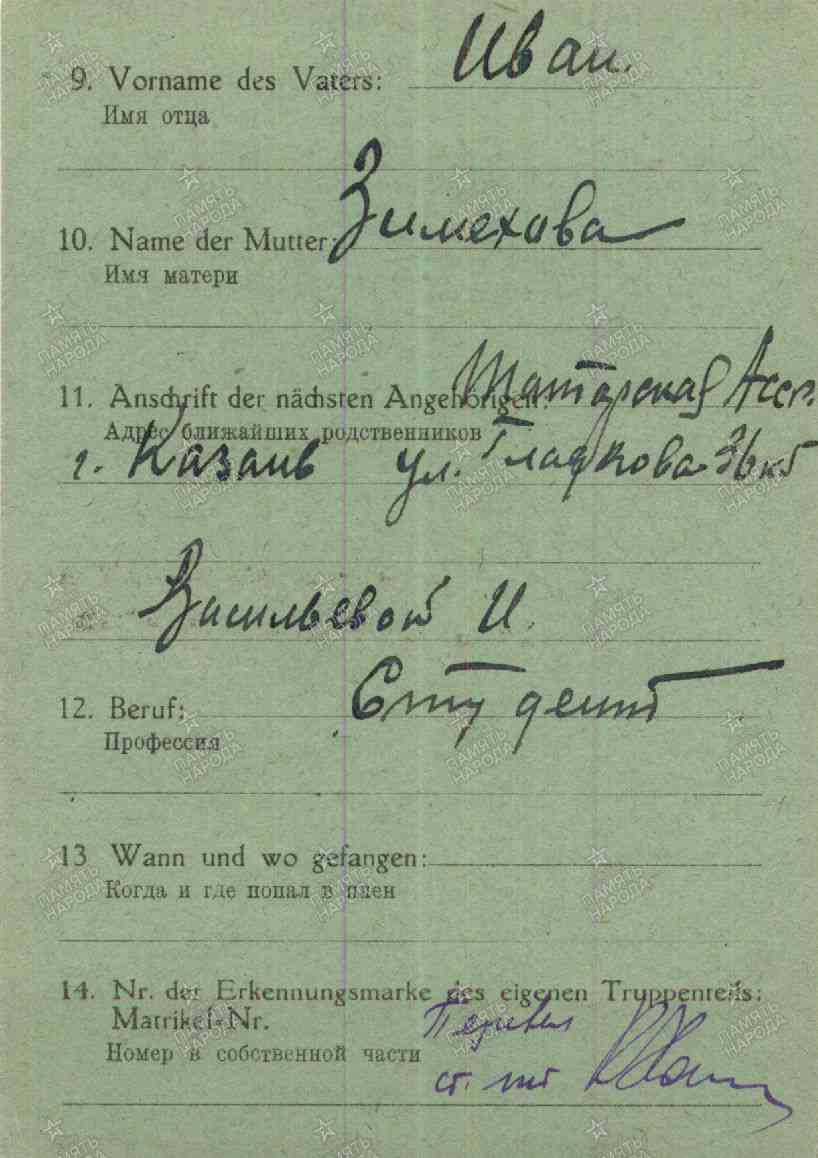 9. Vorname des Vaters: Иван.
Имя отца
10. Name der Mutter: Зимехова
Имя матери
11. Anschrift der nächsten Angehörigen: Татарская Асср.
Адрес ближайших родственников
г. Казань ул. Гладкова 36 кв
Васильевой И.
12. Beruf: Студент
Профессия
13 Wann und wo gefangen:
Когда и где попал в плен
14. Nr. der Erkennungsmarke des eigenen Truppenteils:
Matrikel-Nr.
Номер в собственной части
Перевел
ст. лт
ПАМЯТЬ НАРОДА